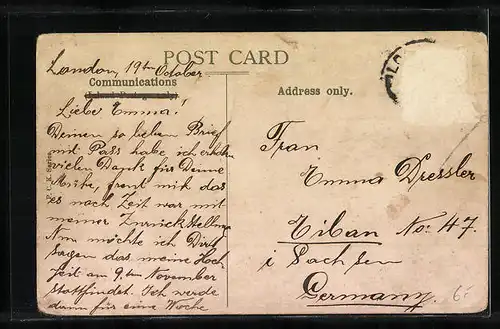 POST CARD
London, 19th October
Communications
Address only.
Liebe Emma!
Deinen so lieben Brief
mit Pass habe ich erhalten
vielen Dank für Deine
Mühe, freut mich das
es noch Zeit war mit
meiner Zurückstellung
Nun möchte ich Dir
sagen das meine Hoch
zeit am 9ten November
stattfindet. Ich werde
dann für eine Woche
Frau
Emma Dressler
Eiban No: 47.
i Sachsen
Germany.
6.-